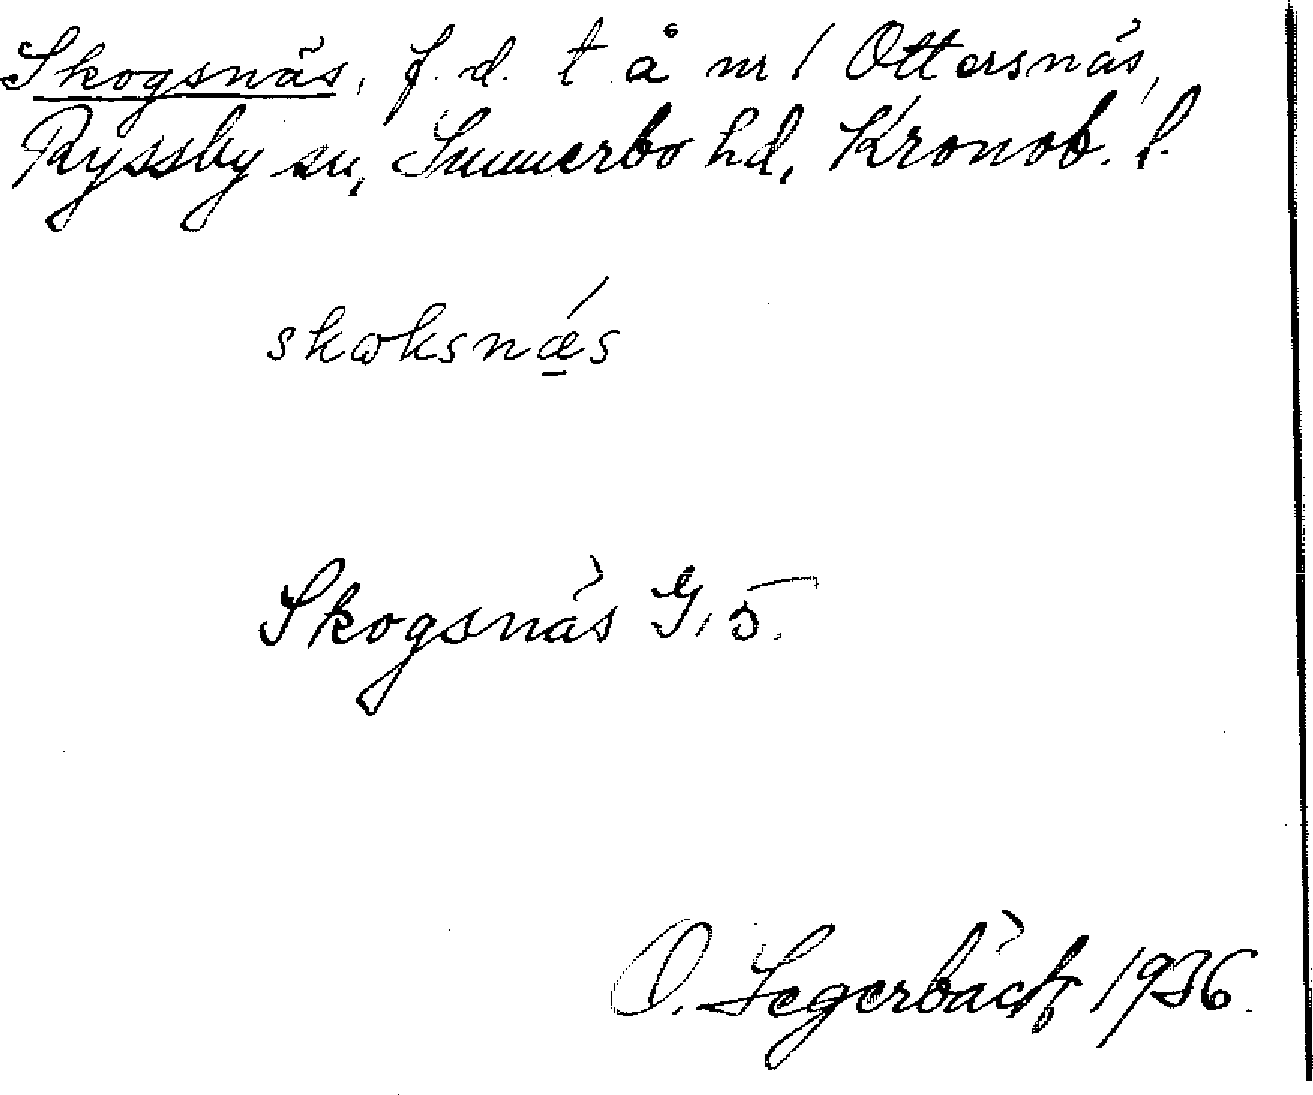 Skogsnäs, f. d. t å nr 1 Ottersnäs,
Ryssby sn, Sunnerbo hd, Kronob. l.
skoksnǽ̲s
Skogsnäs G, 5.
O. Segerbäck 1936.